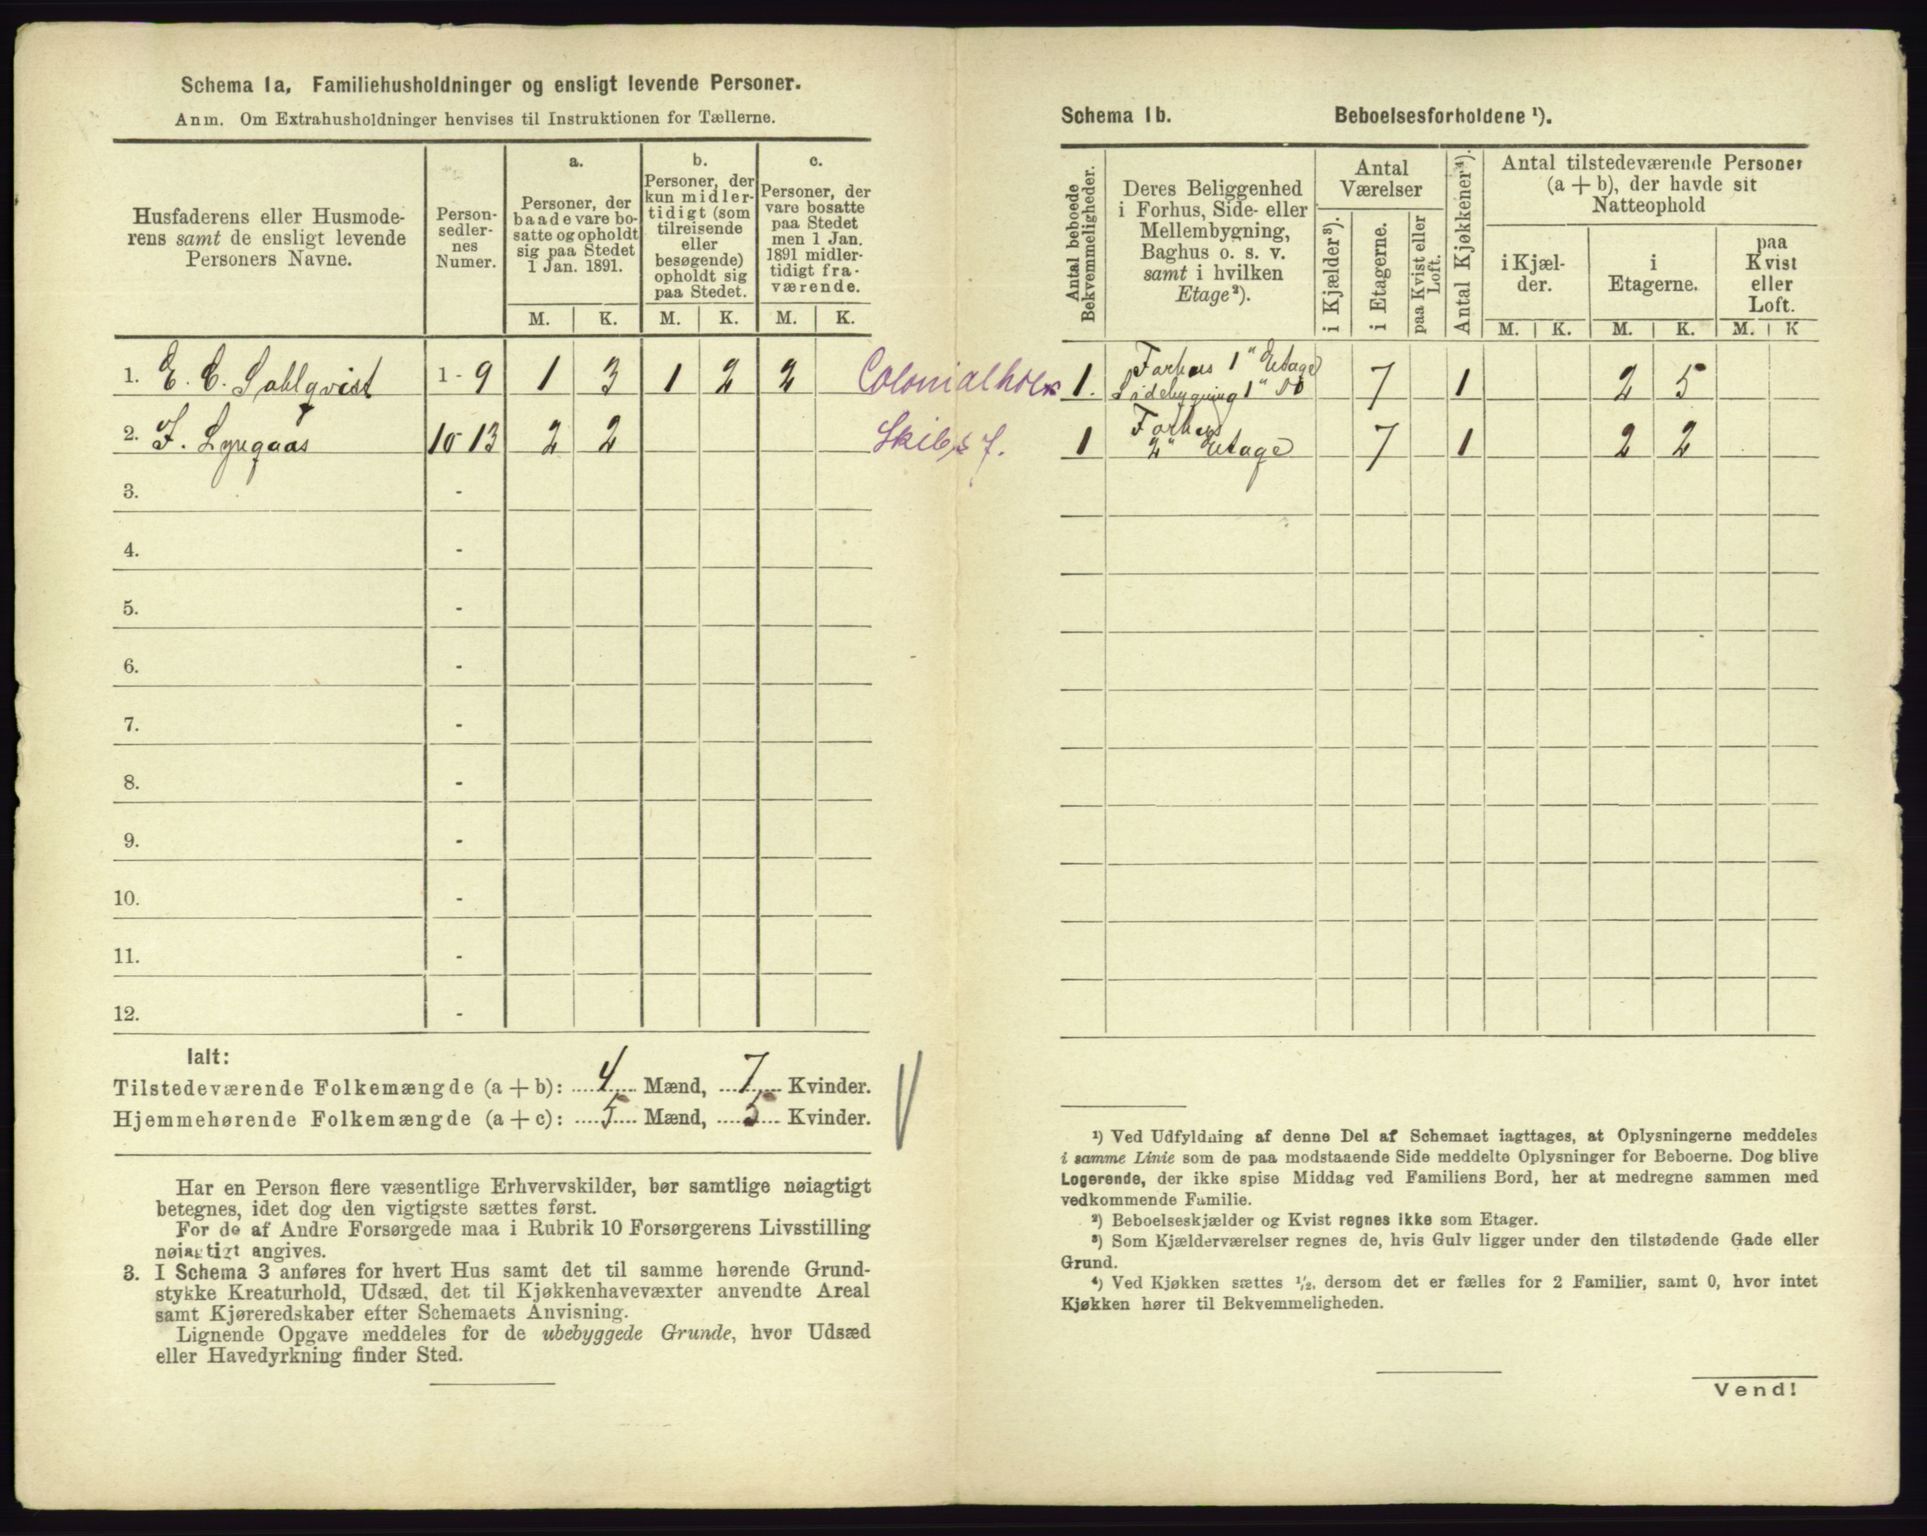 Schema 1a. Familiehusholdninger og ensligt levende Personer.
Anm. Om Extrahusholdninger henvises til Instruktionen for Tællerne.
Husfaderens eller Husmode-
rens samt de ensligt levende
Personers Navne.
Person-
sedler-
nes
Numer.
a.
Personer, der
baade vare bo-
satte og opholdt
sig paa Stedet
1 Jan. 1891.
b.
Personer, der
kun midler-
tidigt (som
tilreisende
eller
besøgende)
opholdt sig
paa Stedet.
c.
Personer, der
vare bosatte
paa Stedet
men 1 Jan.
1891 midler-
tidigt fra-
værende.
M. K. M. K. M. K.
1. E. C. Sahlqvist 1 - 9 1 3 1 2 2 Colonialhol
2. F. Lyngaas 10 - 13 2 2 Skibsf.
3. -
4. -
5. -
6. -
7. -
8. -
9. -
10. -
11. -
12. -
Ialt:
Tilstedeværende Folkemængde (a + b): 4 Mænd, 7 Kvinder.
Hjemmehørende Folkemængde (a + c): 5 Mænd, 5 Kvinder.
Har en Person flere væsentlige Erhvervskilder, bør samtlige nøiagtigt
betegnes, idet dog den vigtigste sættes først.
For de af Andre Forsørgede maa i Rubrik 10 Forsørgerens Livsstilling
nøiagtigt angives.
3. I Schema 3 anføres for hvert Hus samt det til samme hørende Grund-
stykke Kreaturhold, Udsæd, det til Kjøkkenhavevæxter anvendte Areal
samt Kjøreredskaber efter Schemaets Anvisning.
Lignende Opgave meddeles for de ubebyggede Grunde, hvor Udsæd
eller Havedyrkning finder Sted.
Schema 1b. Beboelsesforholdene ¹).
Antal beboede
Bekvemmeligheder.
Deres Beliggenhed
i Forhus, Side- eller
Mellembygning,
Baghus o. s. v.
samt i hvilken
Etage²).
Antal
Værelser
i Kjælder³).
i Etagerne.
paa Kvist eller
Loft.
Antal Kjøkkener⁴).
Antal tilstedeværende Personer
(a + b), der havde sit
Natteophold
i Kjæl-
der.
i
Etagerne.
paa
Kvist
eller
Loft.
M. K. M. K. M. K
1. Forhus 1" Etage
Sidebygning 1" Do 7 1 2 5
1 Forhus
2" Etage 7 1 2 2
¹) Ved Udfyldning af denne Del af Schemaet iagttages, at Oplysningerne meddeles
i samme Linie som de paa modstaaende Side meddelte Oplysninger for Beboerne. Dog blive
Logerende, der ikke spise Middag ved Familiens Bord, her at medregne sammen med
vedkommende Familie.
²) Beboelseskjælder og Kvist regnes ikke som Etager.
³) Som Kjælderværelser regnes de, hvis Gulv ligger under den tilstødende Gade eller
Grund.
⁴) Ved Kjøkken sættes ½, dersom det er fælles for 2 Familier, samt 0, hvor intet
Kjøkken hører til Bekvemmeligheden.
Vend!